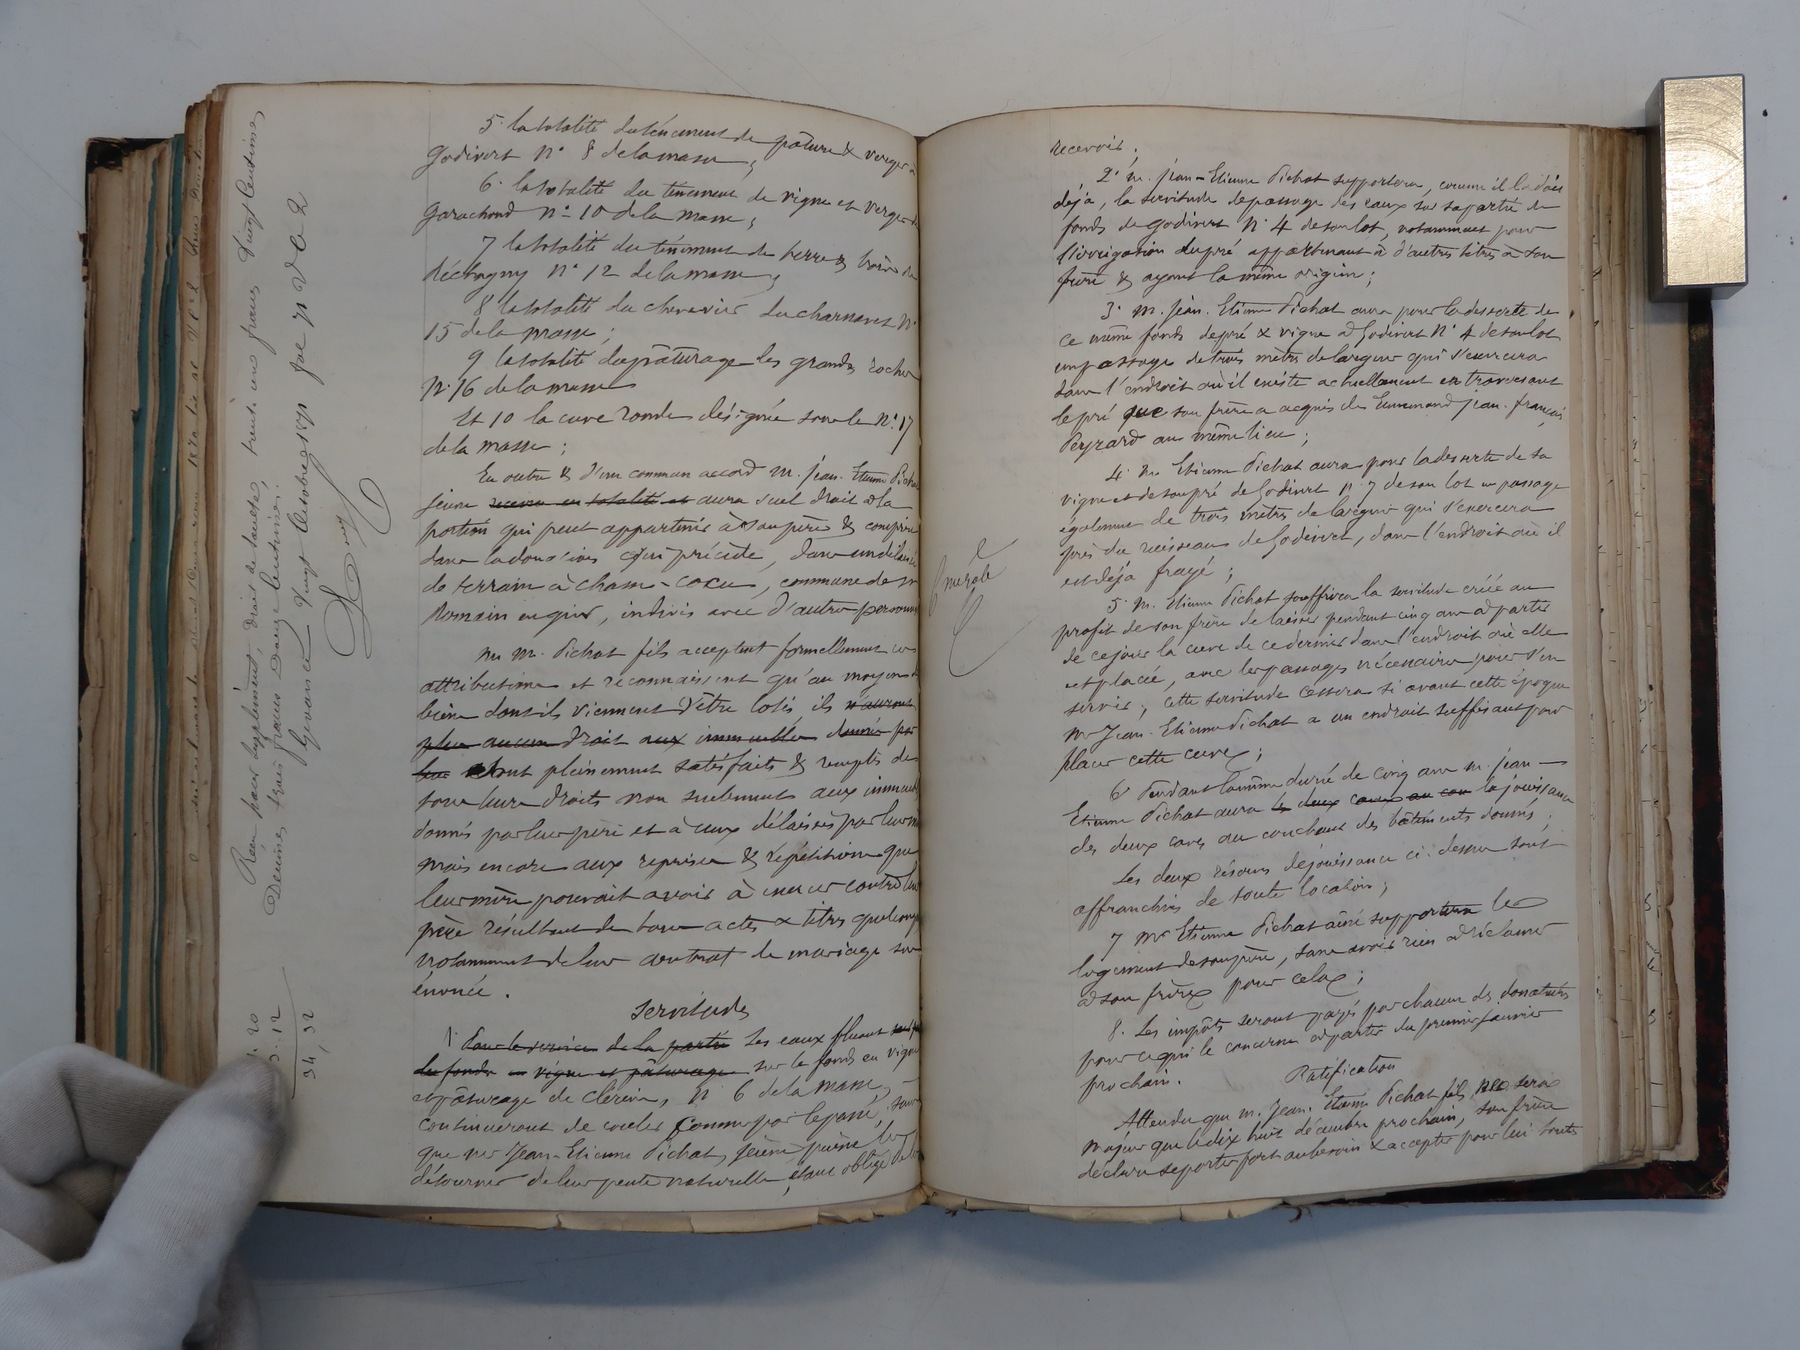 5° la totalité du tènement de pâture & verger à
Godivert N° 8 de la masse ;
6° la totalité du tènement de vigne et verger de
Garachond n° 10 de la masse ;
7 la totalité du tènement de terre & bois de
N° 12 de la masse ;
8 la totalité du chenevier du charnavet N°
15 de la masse ;
9 la totalité du pâturage les grandes roches
N° 16 de la masse
Et 10 la cuve ronde désignée sous le N° 17
de la masse ;
En outre & d'un commun accord M. Jean-Etienne Pichat
jeune recevra en totalité et aura seul droit à la
portion qui peut appartenir à son père & comprise
dans la donation qui précède, dans un
de terrain à , commune de St
Romain en gier, indivis avec d'autres personnes
MM. Pichat fils acceptent formellement ces
attributions et reconnaissent qu'au moyen des
biens dont ils viennent d'être lotis, ils n'auront
plus aucun droit aux immeubles donnés par
leur seront pleinement satisfaits & remplis de
tous leurs droits non seulement aux immeubles
donnés par leur père et à ceux délaissés par leur mère
mais encore aux reprises & répétitions que
leur mère pouvait avoir à exercer contre leur
père résultant de tous actes & titres quelconques
notamment de leur contrat de mariage sus
énoncé.
Servitudes
1° de la partie Les eaux fluant
du fonds en vigne et pâturage sur le fonds en vigne
et pâturage de clérein, N° 6 de la masse,
continueront de couler comme par le passé, sans
que Mr Jean-Etienne Pichat, jeune, puisse les
détourner de leur pente naturelle, étant obligé de les
Reçu pour supplément, droit de soulte, trente un francs vingt centimes
Décimes trois francs douze centimes.
Givors ce vingt octobre 1871 foe 71 V° C 2
31. 20
3. 12
34, 32
recevoir ;
2° M. Jean-Etienne Pichat supportera, comme il le doit
déjà, la servitude de passage des eaux sur sa partie de
fonds de Godivert N° 4 de son lot, notamment pour
l'irrigation du pré appartenant à d'autres titres à son
frère & ayant la même origine ;
3° M. Jean-Etienne Pichat aura pour la desserte de
ce même fonds de pré & vigne à Godivert N° 4 de son lot
un passage de trois mètres de largeur qui s'exercera
dans l'endroit où il existe actuellement en traversant
le pré que son frère a acquis de Jean-François
Peyrard au même lieu ;
4° M. Etienne Pichat aura pour la desserte de sa
vigne et de son pré de Godivert N° 7 de son lot un passage
également de trois mètres de largeur qui s'exercera
près du ruisseau de Godivert, dans l'endroit où il
est déjà frayé ;
5° M. Etienne Pichat souffrira la servitude créée au
profit de son frère de laisser pendant cinq ans à partir
de ce jour la cuve de ce dernier dans l'endroit où elle
est placée, avec les passages nécessaires pour s'en
servir ; cette servitude cessera si avant cette époque
Mr Jean-Etienne Pichat a un endroit suffisant pour
placer cette cuve ;
6° Pendant la même durée de cinq ans M. Jean-
Etienne Pichat aura les deux caves au cou la jouissance
des deux caves au couchant des bâtiments donnés ;
Les deux réserves de jouissance ci-dessus sont
affranchies de toute location ;
7 Mr Etienne Pichat aîné supportera le
logement de son père, sans avoir rien à réclamer
à son frère pour cela ;
8. Les impôts seront payés par chacun des donataires
pour ce qui le concerne à partir du premier janvier
prochain.
Ratification
Attendu que M. Jean-Etienne Pichat fils, ne sera
majeur que le dix huit décembre prochain, son frère
déclare se porter fort au besoin & accepter pour lui toutes